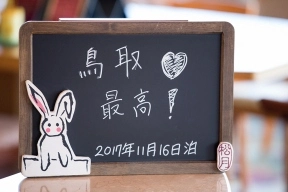 鳥取
最高!
2017年11月16日泊
松月